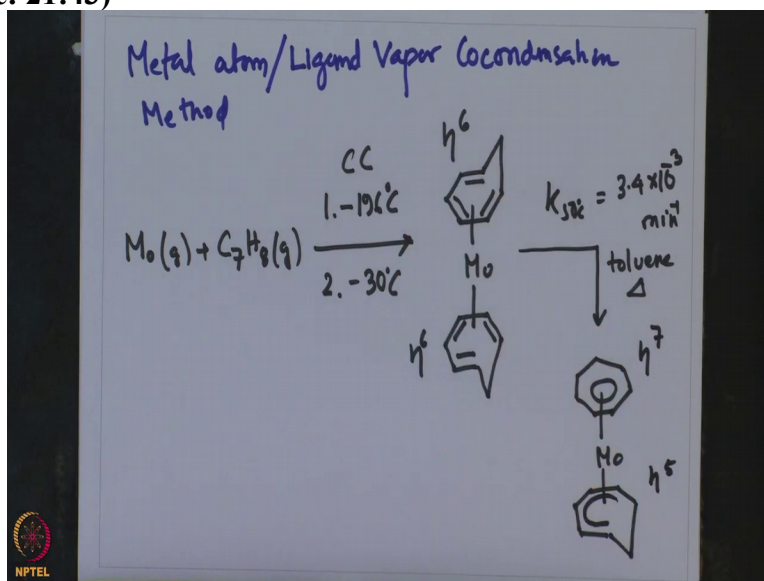 Metal atom/Ligand Vapor Cocondensation
Method
CC
1. -196°C
Mo(g) + C7H8(g)
2. -30°C
η6
Mo
η6
K50°C = 3.4 x 10-3
min-1
toluene
Δ
η7
Mo
η5
NPTEL